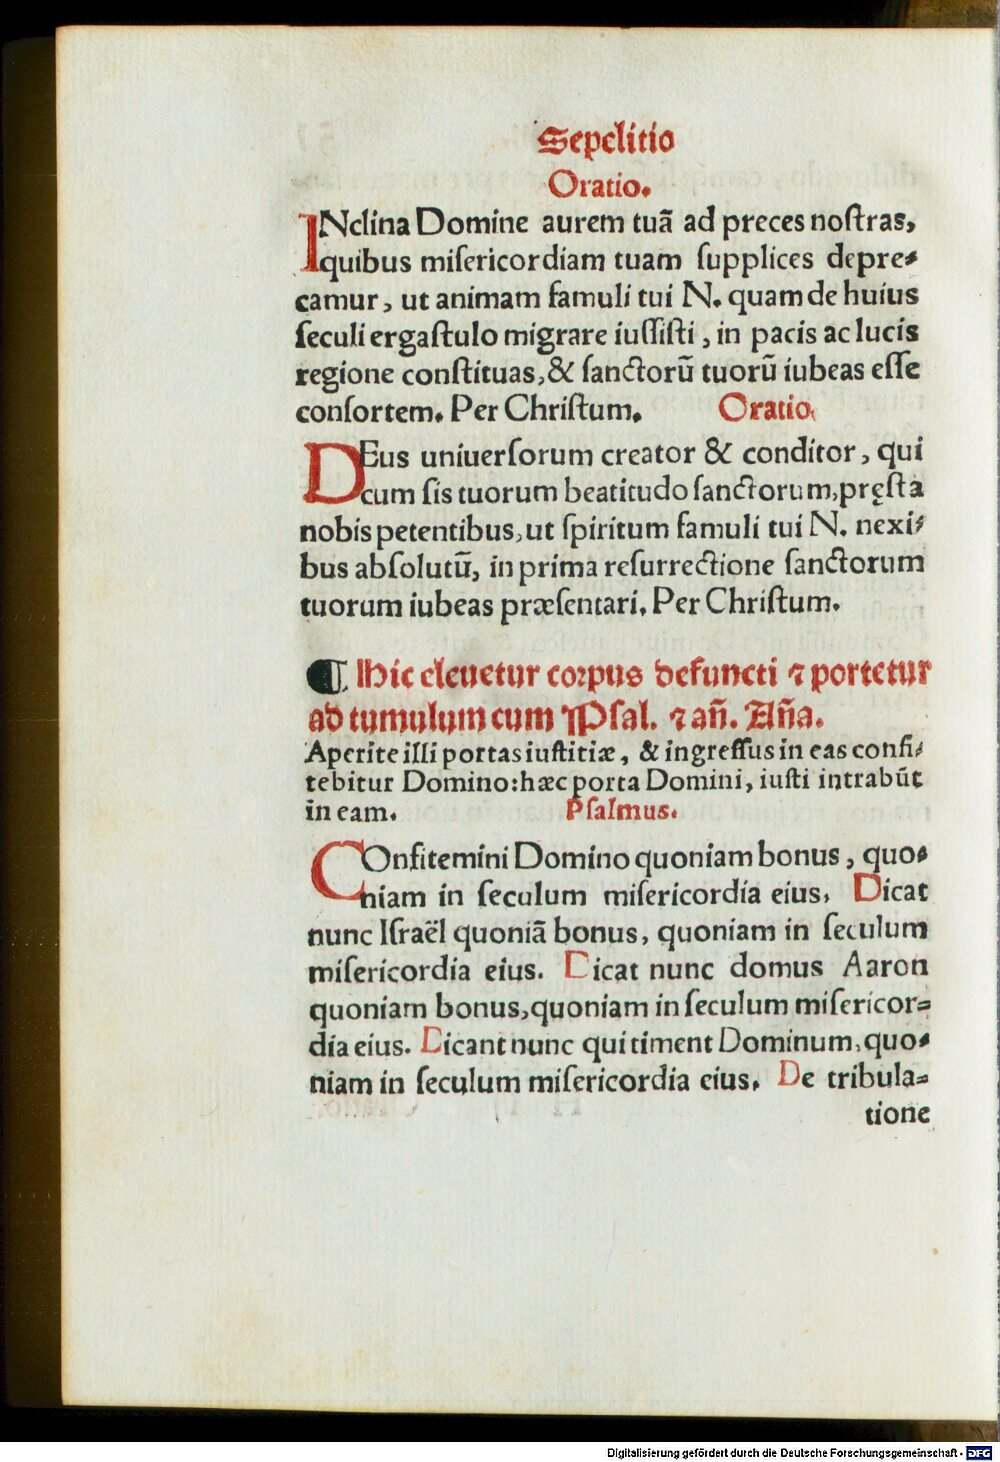 Sepelitio
Oratio.
INclina Domine aurem tuã ad preces noſtras,
quibus miſericordiam tuam ſupplices depre-
camur, ut animam famuli tui N. quam de huius
ſeculi ergaſtulo migrare iuſſiſti, in pacis ac lucis
regione conſtituas, & ſanctorũ tuorũ iubeas eſſe
conſortem. Per Chriſtum. Oratio.
DEus uniuerſorum creator & conditor, qui
cum ſis tuorum beatitudo ſanctorum, pręſta
nobis petentibus, ut ſpiritum famuli tui N. nexi-
bus abſolutũ, in prima reſurrectione ſanctorum
tuorum iubeas præſentari. Per Chriſtum.
¶ Hic eleuetur corpus defuncti ⁊ portetur
ad tumulum cum Pſal. ⁊ añ. Aña.
Aperite illi portas iuſtitiæ, & ingreſſus in eas confi-
tebitur Domino: hæc porta Domini, iuſti intrabũt
in eam. Pſalmus.
COnfitemini Domino quoniam bonus, quo-
niam in ſeculum miſericordia eius. Dicat
nunc Iſraël quoniã bonus, quoniam in ſeculum
miſericordia eius. Dicat nunc domus Aaron
quoniam bonus, quoniam in ſeculum miſericor=
dia eius. Dicant nunc qui timent Dominum, quo-
niam in ſeculum miſericordia eius. De tribula=
tione
Digitalisierung gefördert durch die Deutsche Forschungsgemeinschaft - DFG